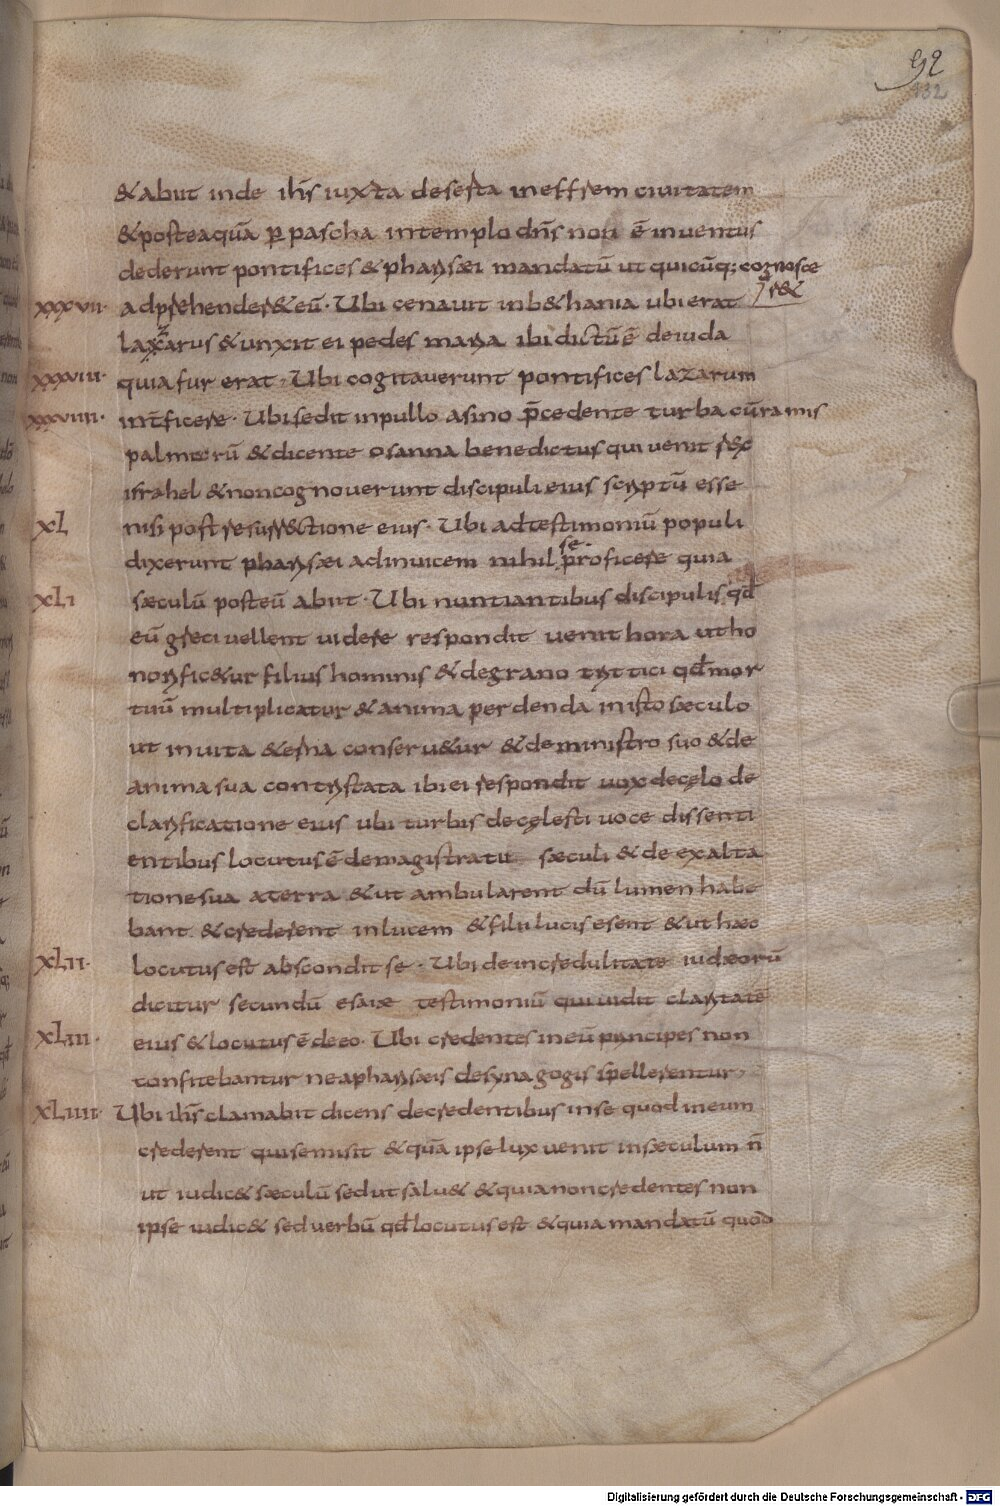 92
132
& abiit inde ihs̄ iuxta deserta in effrem ciuitatem
& posteaquā ꝑ pascha in templo dn̄s non ē inuentus
dederunt pontifices & pharisæi mandatū ut quicūq; cognosce
r&
XXXVII· adprehender& eū· Ubi cenauit in b&hania ubi erat
lazarus & unxit ei pedes maria ibi dictū ē de iuda
XXXVIII· quia fur erat· Ubi cogitauerunt pontifices lazarum
XXXVIIII· int̄ficere· Ubi sedit in pullo asino p̄cedente turba cū ramis
palmorū & dicente osanna benedictus qui uenit rex
israhel & non cognouerunt discipuli eius scriptū esse
XL nisi post resurr&ctione eius· Ubi ad testimoniū populi
se·
dixerunt pharisæi adinuicem nihil proficere quia
XLI sæculū post eū abiit· Ubi nuntiantibus discipulis qđ
eū greci uellent uidere respondit uenit hora ut ho
norific&ur filius hominis & de grano tritici qđ mor
tuū multiplicatur & anima perdenda in isto sæculo
ut in uita &erna conseru&ur & de ministro suo & de
anima sua contristata ibi ei respondit uox de cęlo de
clarificatione eius ubi turbis de cęlesti uoce dissenti
entibus locutus ē de magistratu sæculi & de exalta
tione sua a terra & ut ambularent dū lumen habe
bant & crederent in lucem & filii lucis esent & ut hæc
XLII· locutus est abscondit se· Ubi de incredulitate iudæorū
dicitur secundū esaiæ testimoniū qui uidit claritatē
XLIII· eius & locutus ē de eo· Ubi credentes in eū principes non
confitebantur ne a pharisæis de synagogis expellerentur·
XLIIII· Ubi ihs̄ clamabit dicens de credentibus in se quod in eum
crederent qui se misit & quā ipse lux uenit in sæculum n̄
ut iudic& sæculū sed ut salu& & quia non credentes non
ipse iudic& sed uerbū qđ locutus est & quia mandatū quod
Digitalisierung gefördert durch die Deutsche Forschungsgemeinschaft - DFG